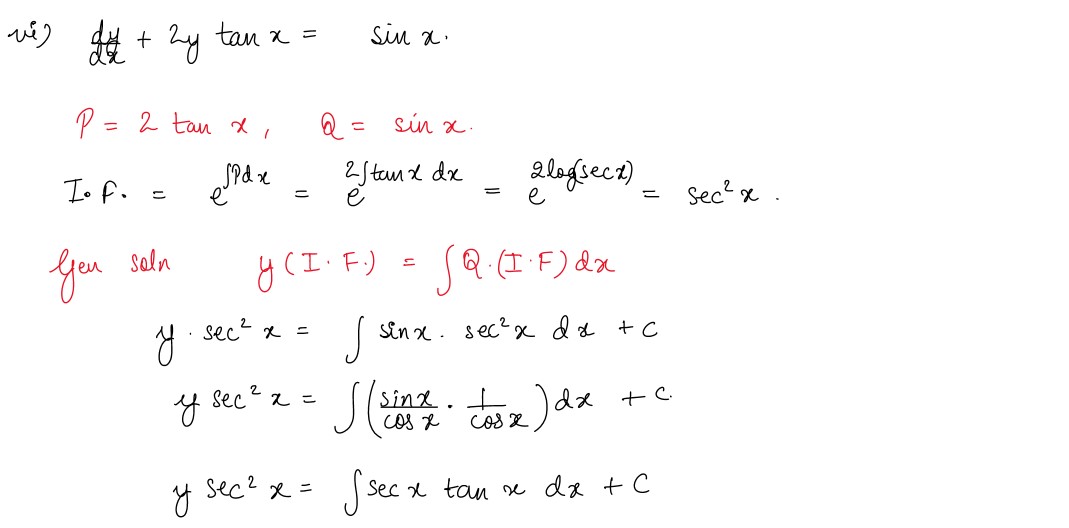 vi) dy/dx + 2y tan x = sin x.
P = 2 tan x, Q = sin x.
I.F. = e^∫Pdx = e^2∫tanx dx = e^2log(secx) = sec² x .
Gen soln y (I.F.) = ∫Q.(I.F) dx
y . sec² x = ∫ sinx. sec²x dx + C
y sec² x = ∫(sinx/cos x . 1/cosx) dx + C.
y sec² x = ∫sec x tan x dx + C